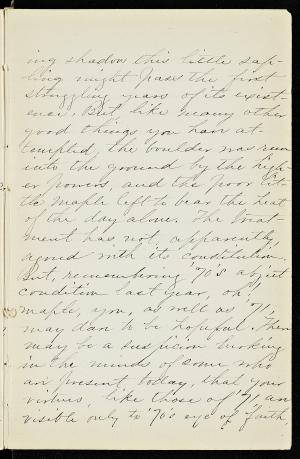 ing shadow this little sap-
ling might pass the first
struggling years of its exist-
ence. But like many other
good things you have at-
tempted, the boulder was run
into the ground by the high-
er powers, and the poor lit-
tle maple left to bear the heat
of the day alone. The treat-
ment has not, apparently,
agreed with its constitution.
But, remembering '70's abject
condition last year, oh!
maple, you, as well as '71,
may dare to be hopeful. There
may be a suspicion lurking
in the minds of some who
are present, today, that your
virtues, like those of '71 are
visible only to '70's eye of faith,